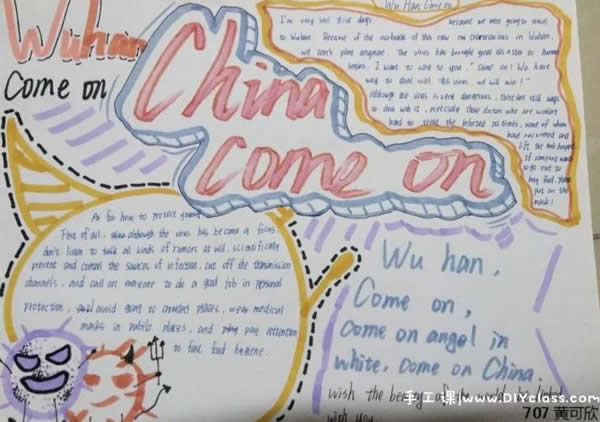 Wuhan
Come on
China
come on
Wu Han Come on
I'm very sad these days, because we were going to travel
to Wuhan. Because of the outbreak of this new coronavirus in Wuhan,
we can't play anymore. The virus has brought great disaster to human
beings. I want to say to you, "Come on! We have
way to deal with this virus we will win!"
Although the virus is very dangerous, there are still ways
to deal with it, especially those doctors who are working
hard to treat the infected patients, some of whom
have recovered and
left the
If someone wants
to go out to
buy food, please
put on the
mask!
As for how to protect yourself
First of all, although the virus has become a focus,
don't listen to talk all kinds of rumors at will, scientifically
prevent and control the sources of infection, cut off the transmission
channels, and call on everyone to do a good job in personal
protection, avoid going to crowded places, wear medical
masks in public places, and pay attention
to fine food hygiene.
Wu han,
Come on,
come on angel in
white, Come on China.
wish the beauty of the world be
with you
手工课|www.DIYclass.com
707 黄可欣